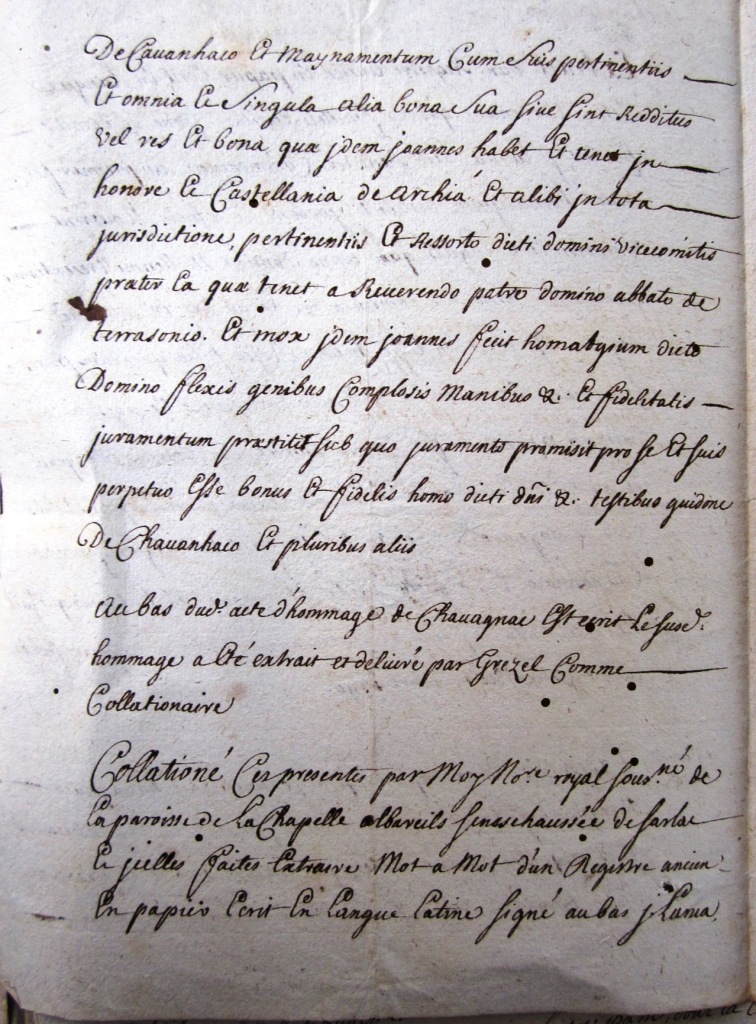 De Cavanhaco Et Maynamentum Cum Suis pertinentiis
Et omnia Et Singula alia bona Sua sive sint Redditus
vel res Et bona quæ jdem joannes habet Et tenet jn
honore Et Castellania de archiá Et alibi jn tota
jurisdictione, pertinentiis Et Ressorto dicti domini vicecomitis
præter Ea quæ tenet a Reverendo patre domino abbate de
terrasonio. Et mox jdem joannes fecit homatgium dicto
Domino flexis genibus Complosis Manibus &. Et fidelitatis
juramentum præstitit sub quo juramento promisit pro se Et suis
perpetuo Esse bonus Et fidelis homo dicti dni &. testibus guidone
De Chavanhaco Et pluribus aliis
Au bas dud. acte d'hommage de Chavagnac Est ecrit Le susd.
hommage a Eté extrait et delivré par Grezel Comme
Collationaire
Collationé Ces presentes par Moy No.re royal sous.né de
La paroisse de La Chapelle albareils seneschaussée de sarlat
Et jcelles faites Extraire Mot a Mot d'un Registre ancien
En papier Ecrit En Langue Latine signé au bas